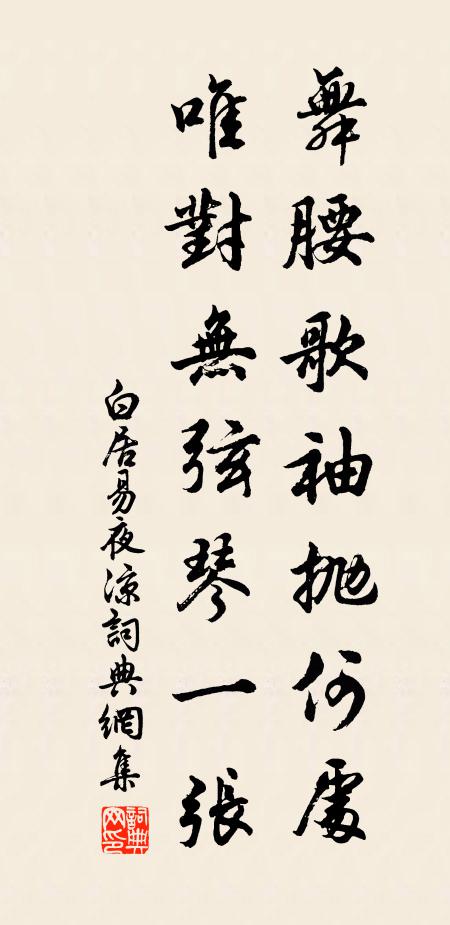 舞腰歌袖拋何處
唯對無弦琴一張
白居易夜涼詞典網集
詞典網印